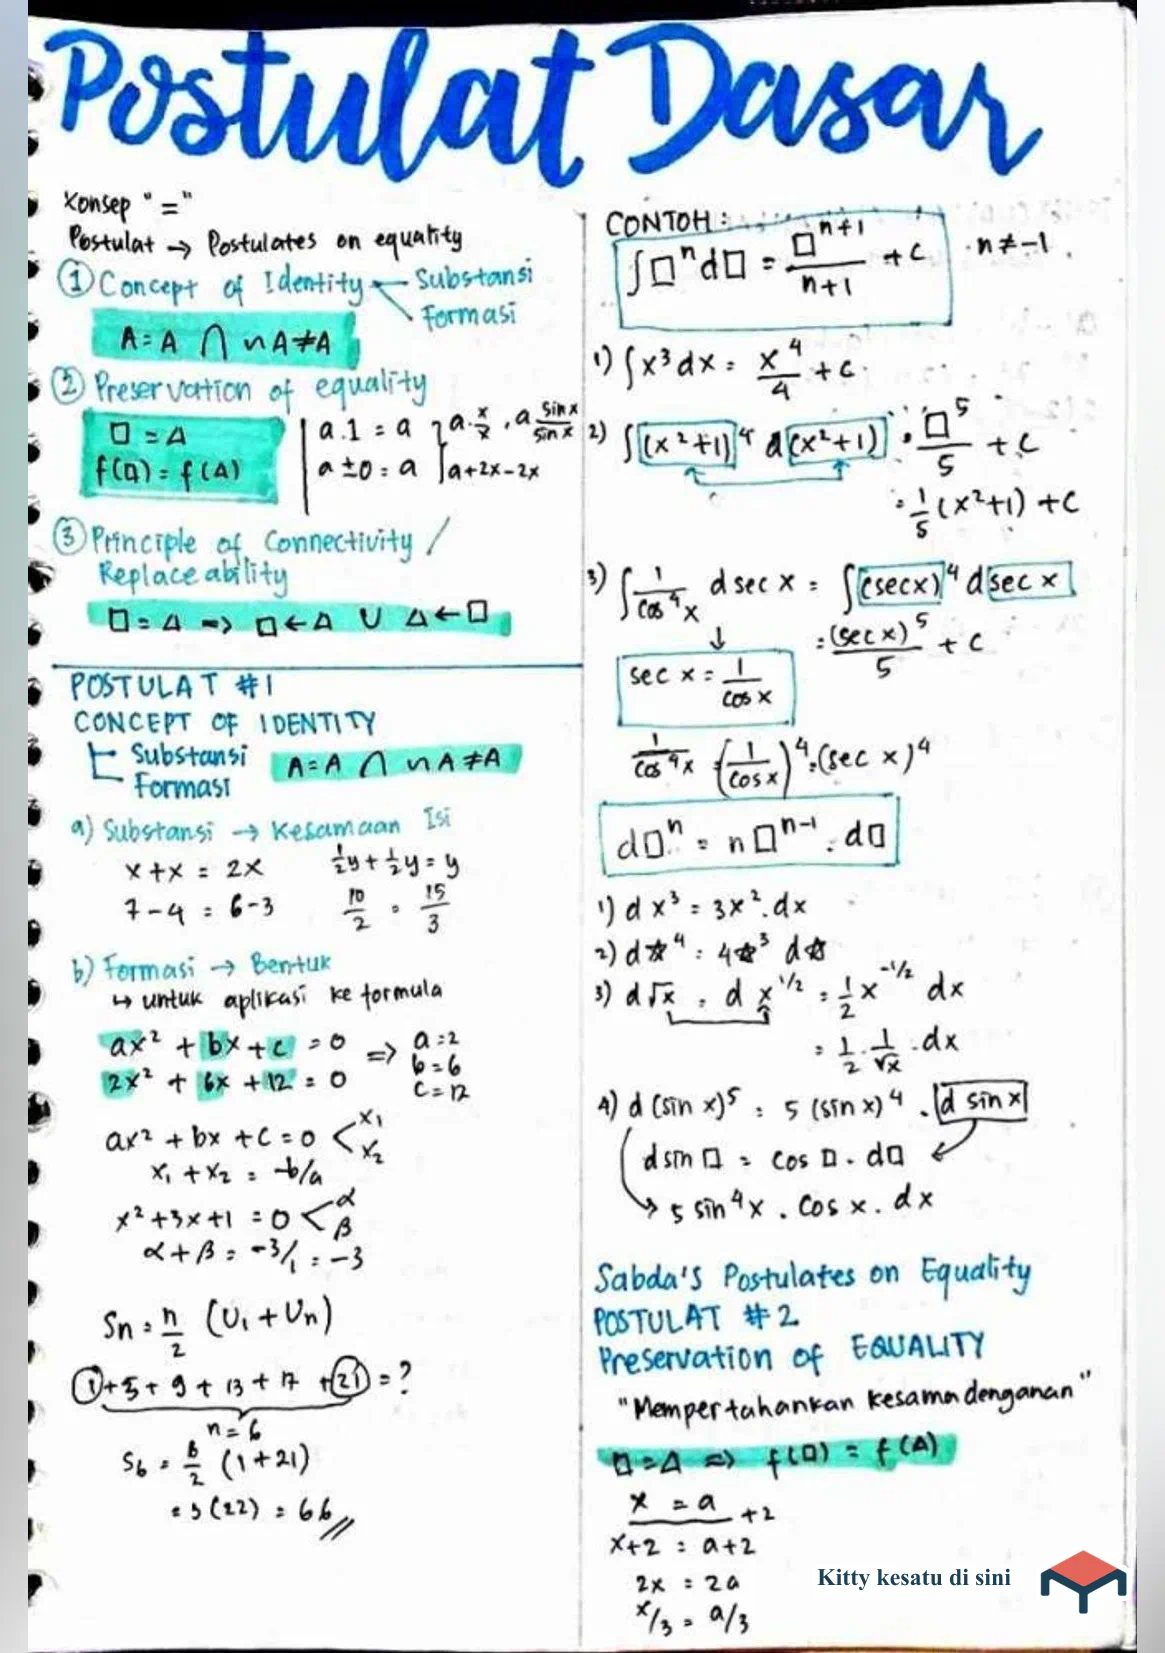 Postulat Dasar
Konsep "="
Postulat → Postulates on equality
① Concept of Identity
Substansi
Formasi
A = A ∩ ∽A ≠ A
② Preservation of equality
□ = Δ
f(□) = f(Δ)
a.1 = a
a ± 0 = a
a. x/x , a sin x/sin x
a+2x-2x
③ Principle of Connectivity /
Replace ability
□ = Δ => □ ← Δ ∪ Δ ← □
POSTULAT #1
CONCEPT OF IDENTITY
Substansi
Formasi
A = A ∩ ∽A ≠ A
a) Substansi → Kesamaan Isi
x + x = 2x
½y + ½y = y
7 - 4 = 6 - 3
10/2 = 15/3
b) Formasi → Bentuk
↳ untuk aplikasi ke formula
ax² + bx + c = 0 => a = 2
2x² + 6x + 12 = 0
b = 6
c = 12
ax² + bx + c = 0 < x₁
x₂
x₁ + x₂ = -b/a
x² + 3x + 1 = 0 < α
β
α + β = -3/1 = -3
Sn = n/2 (U₁ + Un)
1 + 5 + 9 + 13 + 17 + 21 = ?
n = 6
S6 = 6/2 (1 + 21)
= 3 (22) = 66 //
CONTOH :
∫□ⁿ d□ = □ⁿ⁺¹/n+1 + c
n ≠ -1
1) ∫x³ dx = x⁴/4 + c
2) ∫(x²+1)⁴ d(x²+1) = □⁵/5 + c
= 1/5 (x²+1) + c
3) ∫ 1/cos⁴x d sec x = ∫(secx)⁴ d sec x
= (sec x)⁵/5 + c
sec x = 1/cos x
1/cos⁴x = (1/cos x)⁴ = (sec x)⁴
d□ⁿ = n □ⁿ⁻¹ . d□
1) d x³ = 3x² . dx
2) d☆⁴ = 4☆³ d☆
3) d√x = d x^1/2 = 1/2 x^-1/2 dx
= 1/2 . 1/√x . dx
4) d (sin x)⁵ = 5 (sin x)⁴ . d sin x
d sin □ = cos □ . d□
5 sin⁴x . cos x . dx
Sabda's Postulates on Equality
POSTULAT #2
Preservation of EQUALITY
"Mempertahankan kesamadenganan"
□ = Δ => f(□) = f(Δ)
x = a
+2
x+2 = a+2
2x = 2a
x/3 = a/3
Kitty kesatu di sini